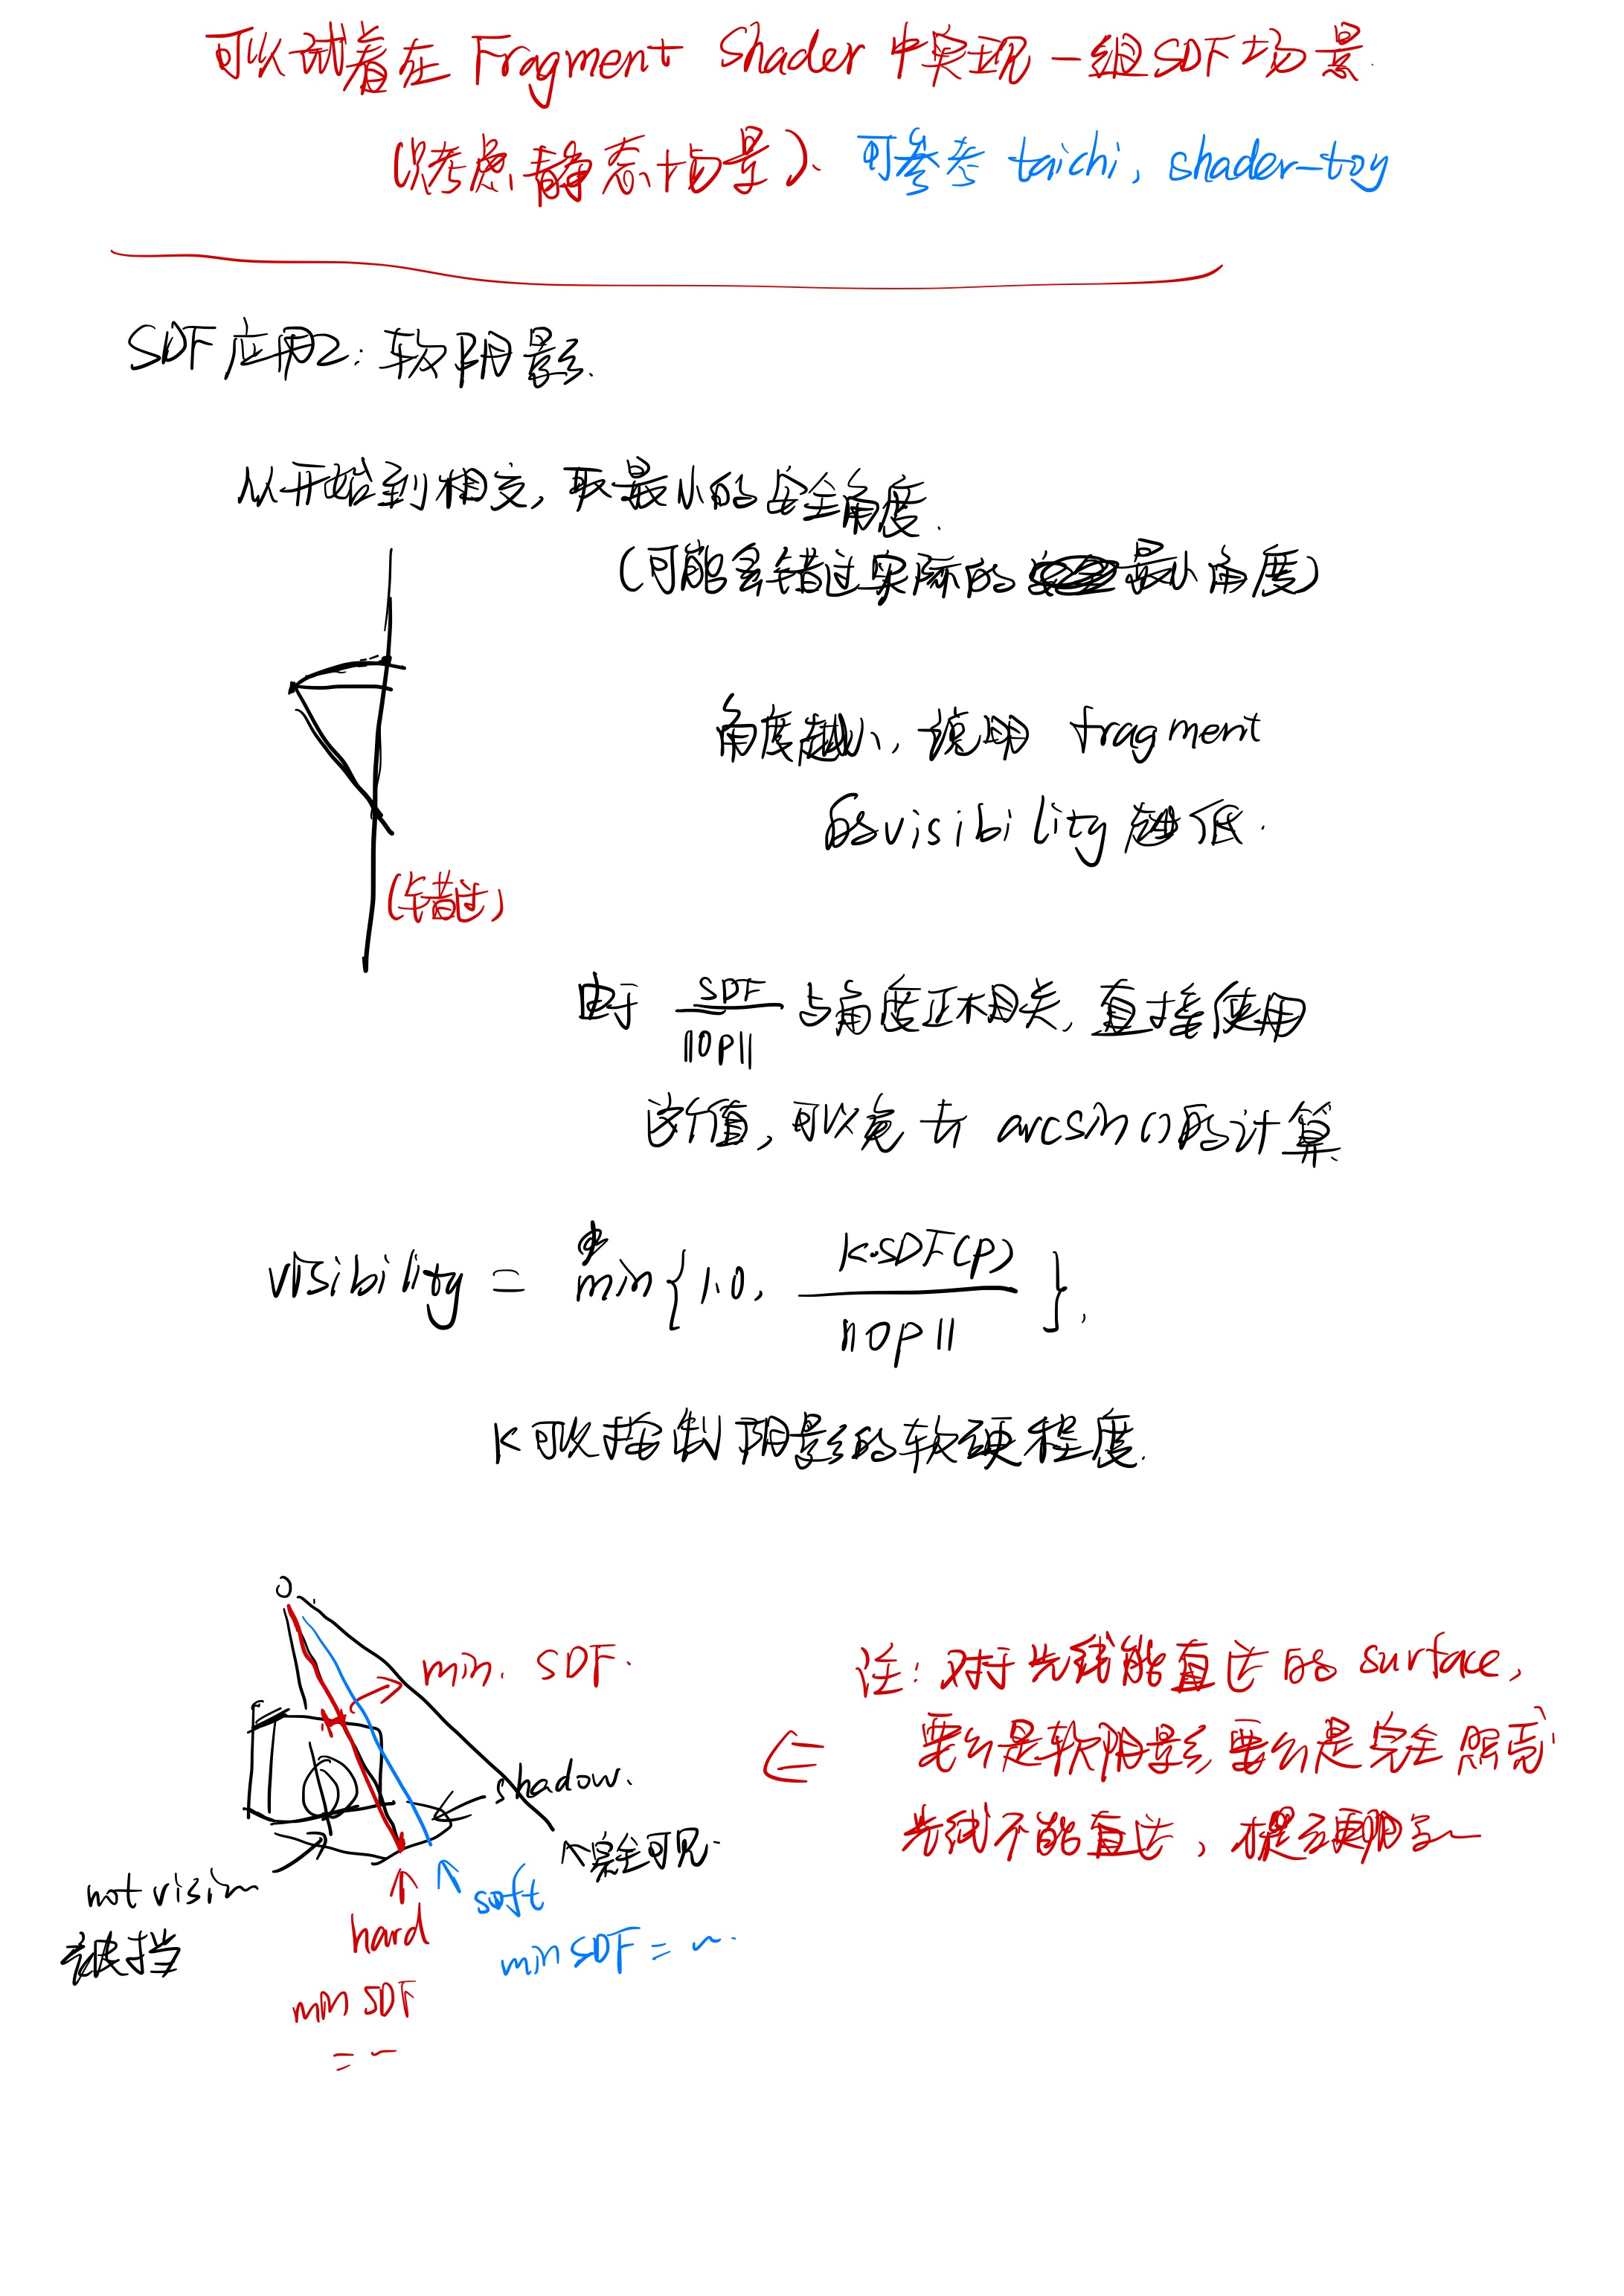 可以试着在 Fragment Shader 中实现一组SDF场景.
(只考虑静态场景). 可参考 taichi, shader-toy
SDF应用2: 软阴影.
从开始到相交, 取最小的安全角度.
(可能会错过实际的最小角度)
角度越小, 说明 fragment
的visibility越低.
(错过)
由于 SDF/||op|| 与角度正相关, 直接使用
这个值, 可以免去 arcsin()的计算.
visibility = min{1.0, k·SDF(p)/||op||}.
K可以控制阴影的软硬程度.
O
min. SDF.
shadow.
完全可见.
not visi
被挡
hard
min SDF
= ~
soft
min SDF = ~.
注: 对于光线能直达的 surface,
要么是软阴影, 要么是完全照亮
光线不能直达, 才是硬阴影